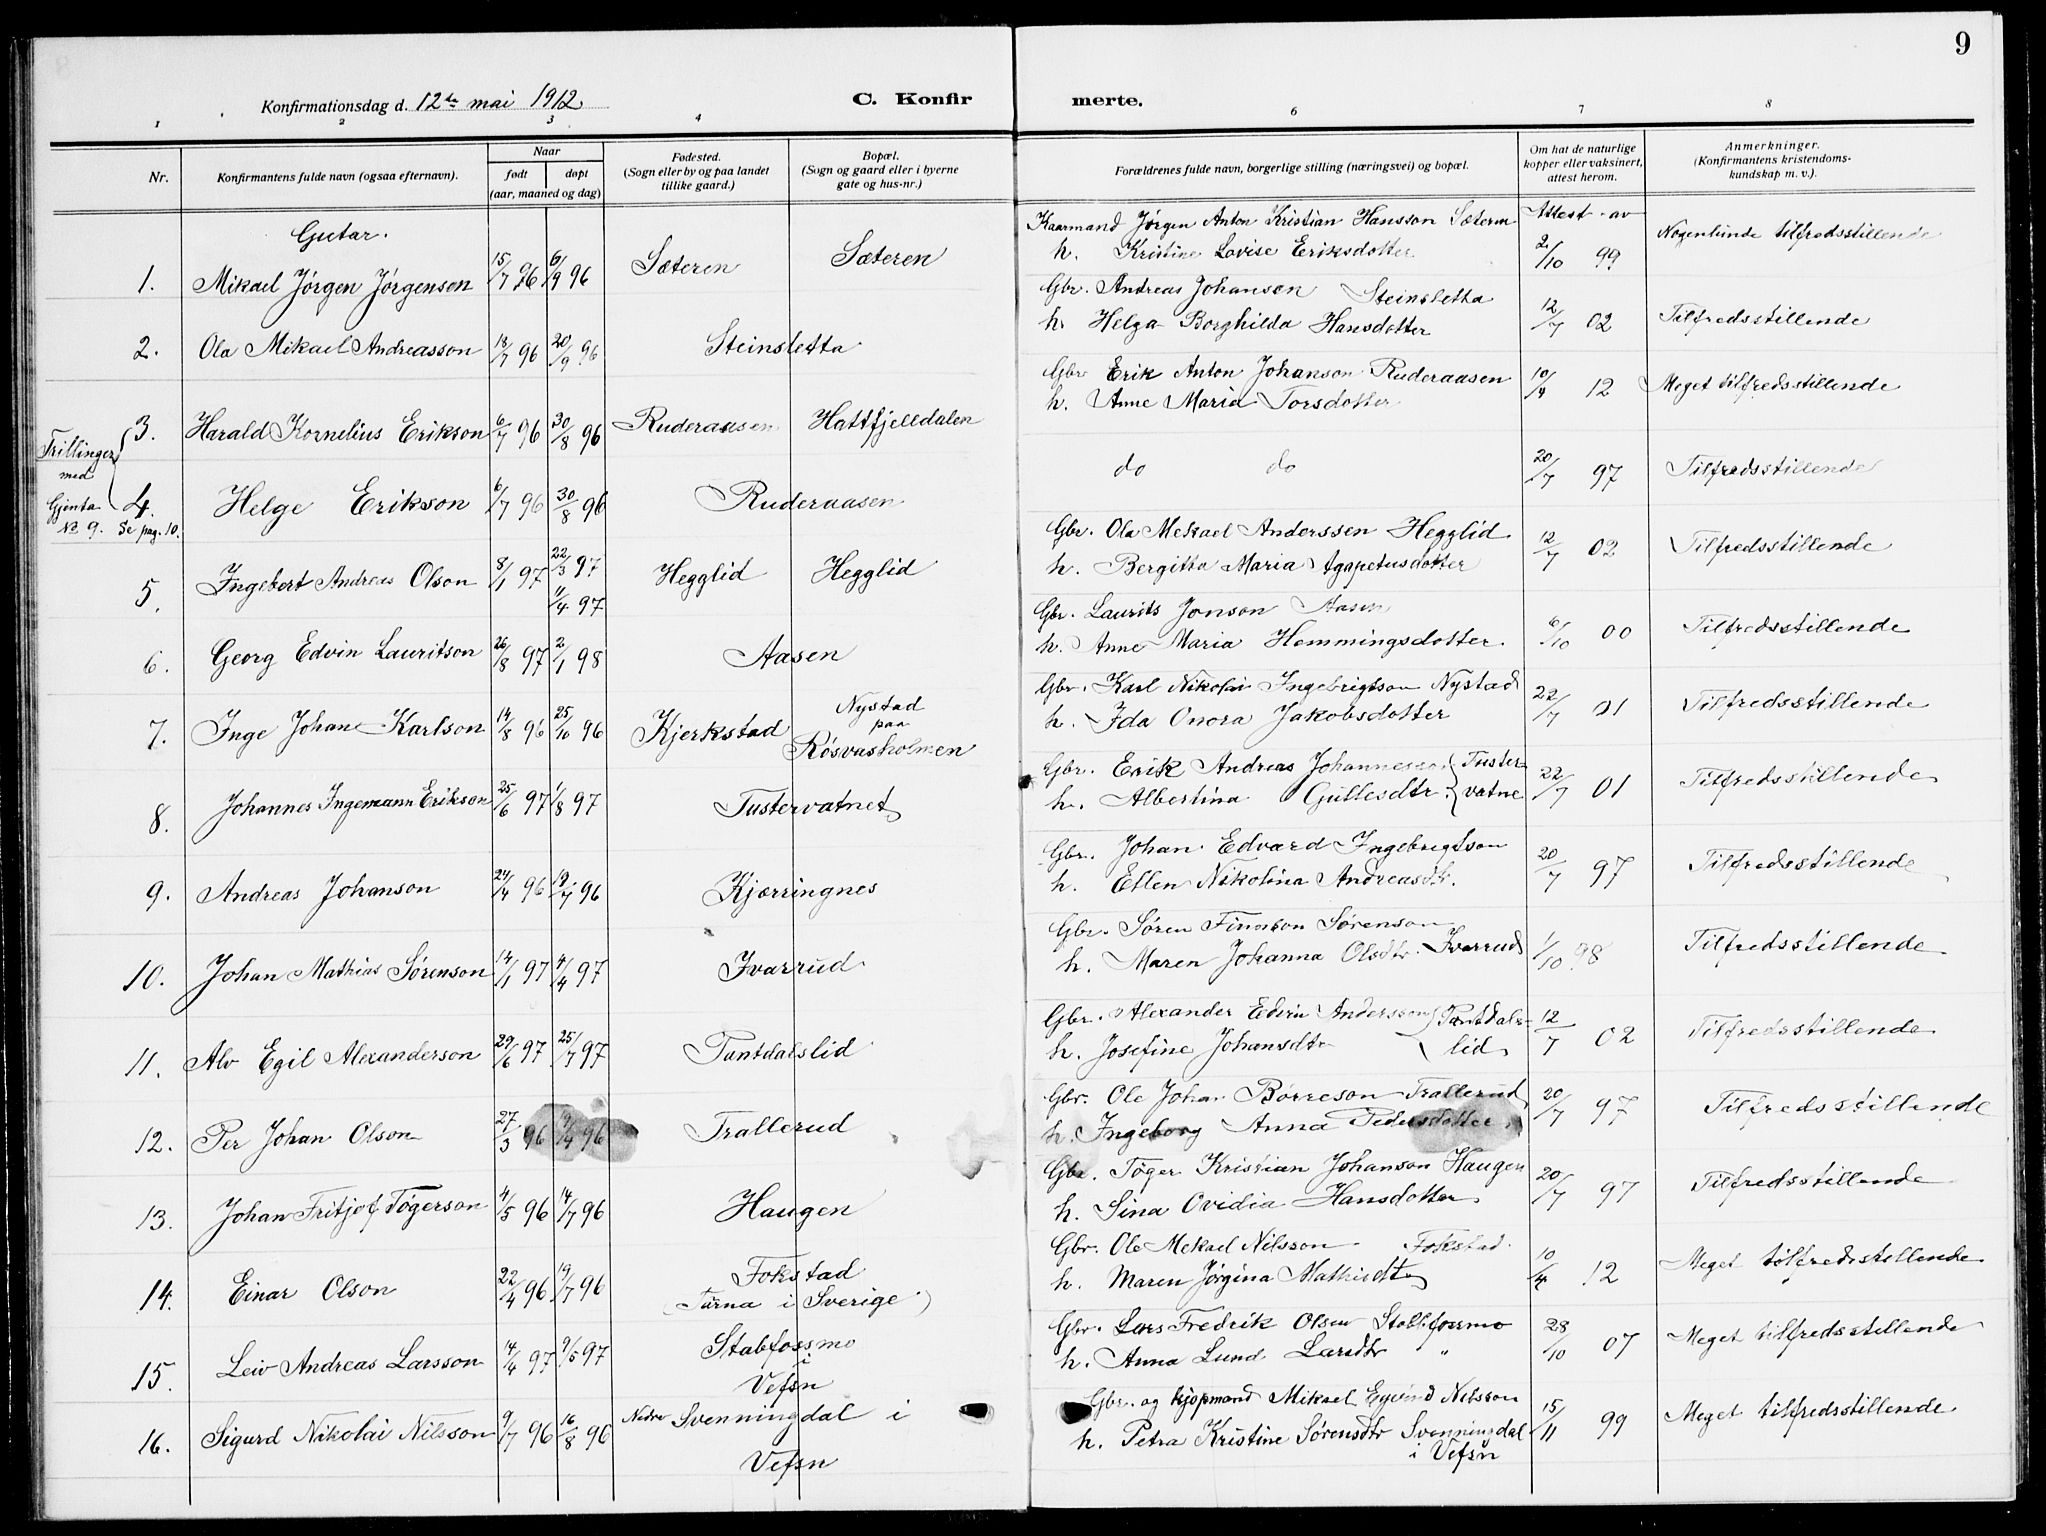 9
Konfirmationsdag d. 12te mai 1912.
C. Konfirmerte.
1 2 3 4 6 7 8
Nr.
Konfirmantens fulde navn (ogsaa efternavn).
Naar
født døpt
(aar, maaned og dag)
Fødested.
(Sogn eller by og paa landet
tillike gaard.)
Bopæl.
(Sogn og gaard eller i byerne
gate og hus-nr.)
Forældrenes fulde navn, borgerlige stilling (næringsvei) og bopæl.
Om hat de naturlige
kopper eller vaksinert,
attest herom.
Anmerkninger.
(Konfirmantens kristendoms-
kundskap m. v.).
Gutar.
Attest av
1. Mikael Jørgen Jørgenson 15/7 96 6/9 96 Sæteren Sæteren
Kaarmand Jørgen Anton Kristian Hansson Sæteren
h. Kristine Lovise Eriksdotter 2/10 99 Nogenlunde tilfredsstillende
2. Ola Mikael Andreasson 18/7 96 20/9 96 Steinsletta
Gbr. Andreas Johanson Steinsletta
h. Helga Borghilda Hansdotter 12/7 02 Tilfredsstillende
3. Harald Kornelius Erikson 6/7 96 30/8 96 Ruderaasen Hattfjelldalen
Gbr. Erik Anton Johanson Ruderaasen
h. Anne Maria Torsdotter 10/4 12 Meget tilfredsstillende
Trillinger
med
Gjenta
No 9. Se pag. 10.
4. Helge Erikson 6/7 96 30/8 96 Ruderaasen
do do 20/7 97 Tilfredsstillende
5. Ingebert Andreas Olson 8/1 97 22/3 97 Hegglid Hegglid
11/4 97
Gbr. Ola Mekael Anderssen Hegglid
h. Bergitta Maria Agapetusdotter 12/7 02 Tilfredsstillende
6. Georg Edvin Lauritson 26/8 97 2/1 98 Aasen
Gbr. Laurits Jonson Aasen
h. Anne Maria Hemmingsdotter 6/10 00 Tilfredsstillende
7. Inge Johan Karlson 14/8 96 25/10 96 Kjerkstad Nystad
paa
Røsvasholmen
Gbr. Karl Nikolai Ingebrigtson Nystad
h. Ida Onora Jakobsdotter 22/7 01 Tilfredsstillende
8. Johannes Ingemann Erikson 25/6 97 1/8 97 Tustervatnet
Gbr. Erik Andreas Johannesson Tuster-
h. Albertina Gullesdtr. vatne 22/7 01 Tilfredsstillende
9. Andreas Johanson 24/4 96 19/7 96 Kjerringnes
Gbr. Johan Edvard Ingebrigtson
h. Ellen Nikolina Andreasdtr. 20/7 97 Tilfredsstillende
10. Johan Mathias Sørenson 14/1 97 4/4 97 Ivarrud
Gbr. Søren Sørenson
h. Maren Johanna Olsdtr. Ivarrud 1/10 98 Tilfredsstillende
11. Alv Egil Alexanderson 29/6 97 25/7 97 Tantdalslid
Gbr. Alexander Edvin Andersson Tantdals-
h. Josefine Johansdtr lid 12/7 02 Tilfredsstillende
12. Per Johan Olson 27/3 96 19/4 96 Trallerud
Gbr. Ole Johan Børreson Trallerud
h. Ingeborg Anna Pedersdotter 20/7 97 Tilfredsstillende
13. Johan Fritjof Tøgerson 4/5 96 14/7 96 Haugen
Gbr. Tøger Kristian Johanson Haugen
h. Sina Ovidia Hansdotter 20/7 97 Tilfredsstillende
14. Einar Olson 22/4 96 19/7 96 Fokstad
(Tärna i Sverige)
Gbr. Ole Mekael Nilsson Fokstad
h. Maren Jørgina Mathisdtr 10/4 12 Meget tilfredsstillende
15. Leiv Andreas Larsson 14/4 97 9/5 97 Stabfossmo
i
Vefsn
Gbr. Lars Fredrik Olsen Stabfossmo
h. Anna Lund Larsdtr " 28/10 07 Meget tilfredsstillende
16. Sigurd Nikolai Nilsson 9/7 96 16/8 96 Nedre Svenningdal i
Vefsn
Gbr. og kjøpmand Mikael Eyvind Nilsson
h. Petra Kristine Sørensdtr Svenningdal
i Vefsn 15/11 99 Meget tilfredsstillende